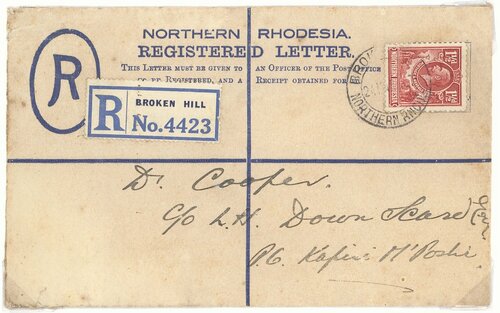 NORTHERN RHODESIA.
REGISTERED LETTER.
THIS LETTER MUST BE GIVEN TO AN OFFICER OF THE POST OFFICE
TO BE REGISTERED, AND A RECEIPT OBTAINED FOR
R
R
BROKEN HILL
No. 4423
NORTHERN RHOD
1½D
1½D
NORTHERN RHODESIA
Dr. Cooper.
C/o L.H. Down
P.O. Kapiri M'Poshi